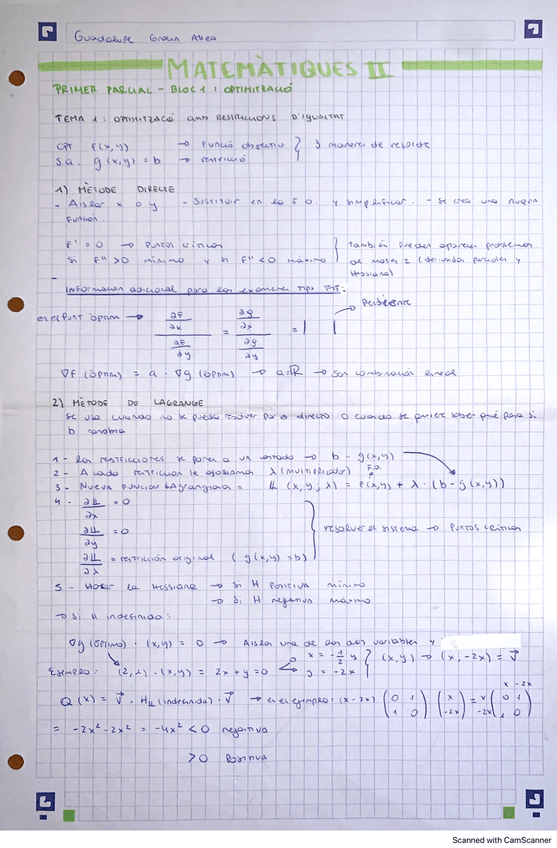 Guadalupe
MATEMÀTIQUES II
PRIMER PARCIAL - BLOC 1: OPTIMITZACIÓ
TEMA 1: OPTIMITZACIÓ amb RESTRICCIONS D'IGUALTAT
OPT F(x,y) → FUNCIÓ objectiu } 3 maneres de resoldre
S.a. g(x,y) = b → restricció
1) MÈTODE DIRECTE
- Aislar x o y - Sustituir en la F.O. y simplificar. - Se crea una nueva
Función.
F' = 0 → Puntos críticos
Si F'' > 0 mínimo y si F'' < 0 máximo
también pueden aparecer problemas
de mates I (derivadas parciales y
Hessiana)
Información adicional para los exámenes tipo TEST:
en el PUNT òptim → ∂F/∂x / ∂F/∂y = ∂g/∂x / ∂g/∂y = | | → Pendiente
∇F (òptim) = a · ∇g (òptim) → a=ℝ → son combinación lineal
2) MÈTODE DE LAGRANGE
Se usa cuando no se puede resolver por el directo o cuando se quiere saber qué pasa si
b cambia
1 - las restricciones se ponen a un costado → b - g(x,y)
2 - A cada restricción le λ (multiplicador)
3 - Nueva FUNCIÓN LAgrangiana = 𝕃 (x,y,λ) = F(x,y) + λ · (b - g(x,y))
F.O.
4 - ∂𝕃/∂x = 0
∂𝕃/∂y = 0
∂𝕃/∂λ = restricción original (g(x,y) = b)
resolver el sistema → Puntos críticos
5 - Hacer la Hessiana → Si H Positiva mínimo
→ Si H negativa máximo
→ Si H indefinida:
∇g (óptimo) · (x,y) = 0 → Aislar una de las dos variables y
Ejemplo: (2,1) · (x,y) = 2x + y = 0 < x = -1/2 y
y = -2x } (x,y) → (x,-2x) = v⃗
Q(x) = v⃗ · H𝕃 (indefinida) · v⃗ → en el ejemplo: (x -2x) (0 1 / 1 0) (x / -2x) = x -2x (0 1 / 1 0) x -2x
= -2x² - 2x² = -4x² < 0 negativa
> 0 Positiva
Scanned with CamScanner